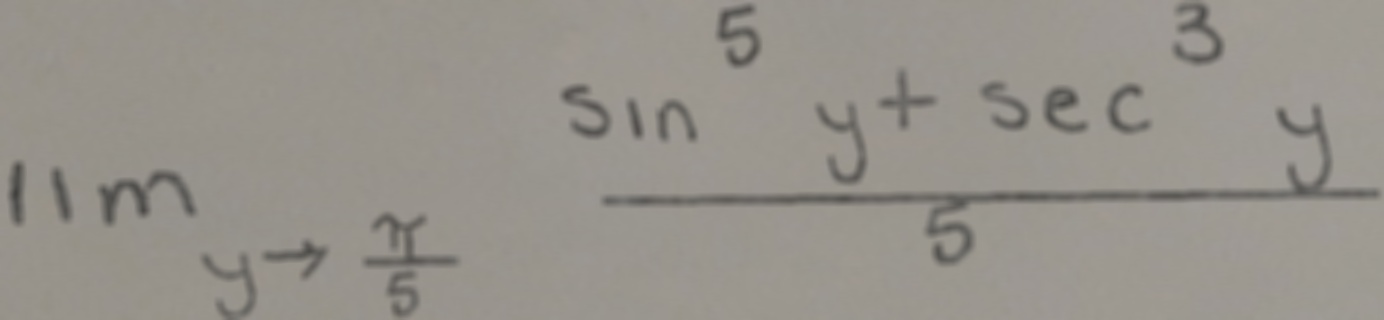 lim_{y \to \frac{\pi}{5}} \frac{\sin^5 y + \sec^3 y}{5}